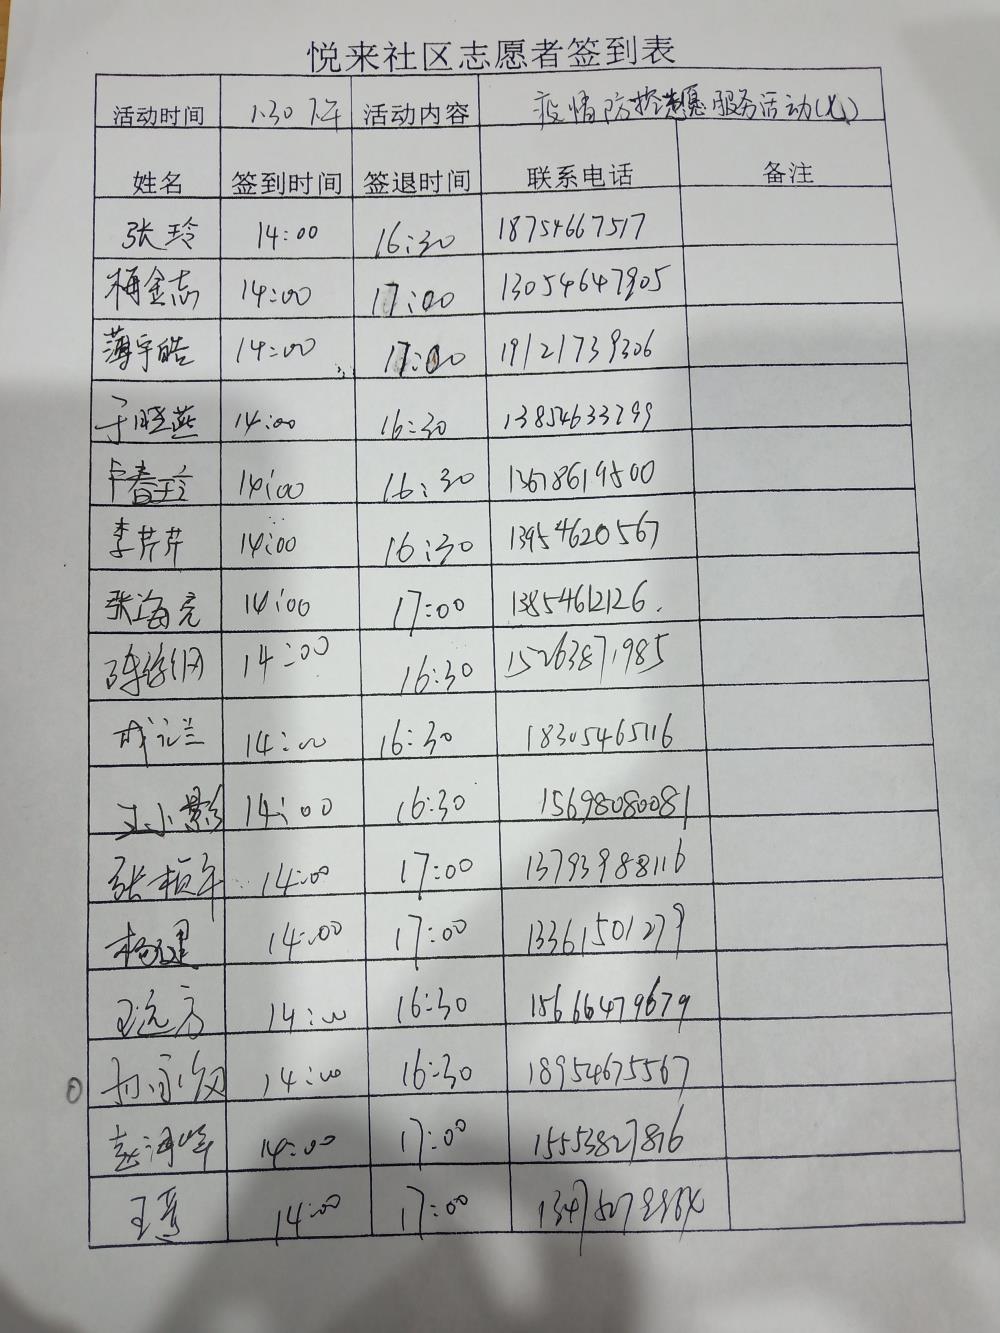 悦来社区志愿者签到表
活动时间 1.30 下午 活动内容 疫情防控志愿服务活动(七)
姓名 签到时间 签退时间 联系电话 备注
张玲 14:00 16:30 18754667517
梅金志 14:00 17:00 13054647905
薄宇皓 14:00 17:00 19121739306
于晓燕 14:00 16:30 13854633299
卢春玲 14:00 16:30 13678619500
李芹芹 14:00 16:30 13954620567
张海亮 14:00 17:00 13854612126.
14:00 16:30 15263871985
成记兰 14:00 16:30 18305465116
王小影 14:00 16:30 15698080081
张桢年 14:00 17:00 13793988116
杨建 14:00 17:00 13361501279
王远方 14:00 16:30 15666479679
14:00 16:30 18954675567
赵海峰 14:00 17:00 15553827816
王彦 14:00 17:00